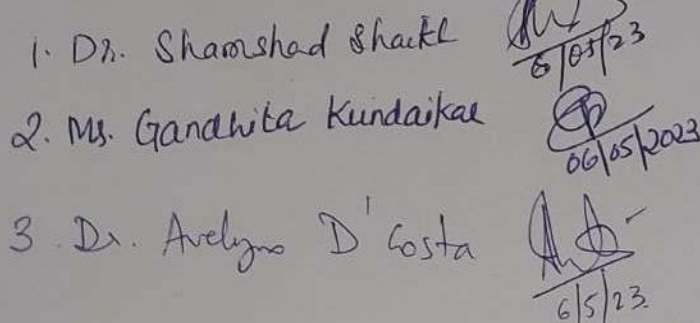 1. Dr. Shamshad Shaikh 6/05/23
2. Ms. Gandhita Kundaikar 06/05/2023
3. Dr. Avelyno D'Costa 6/5/23